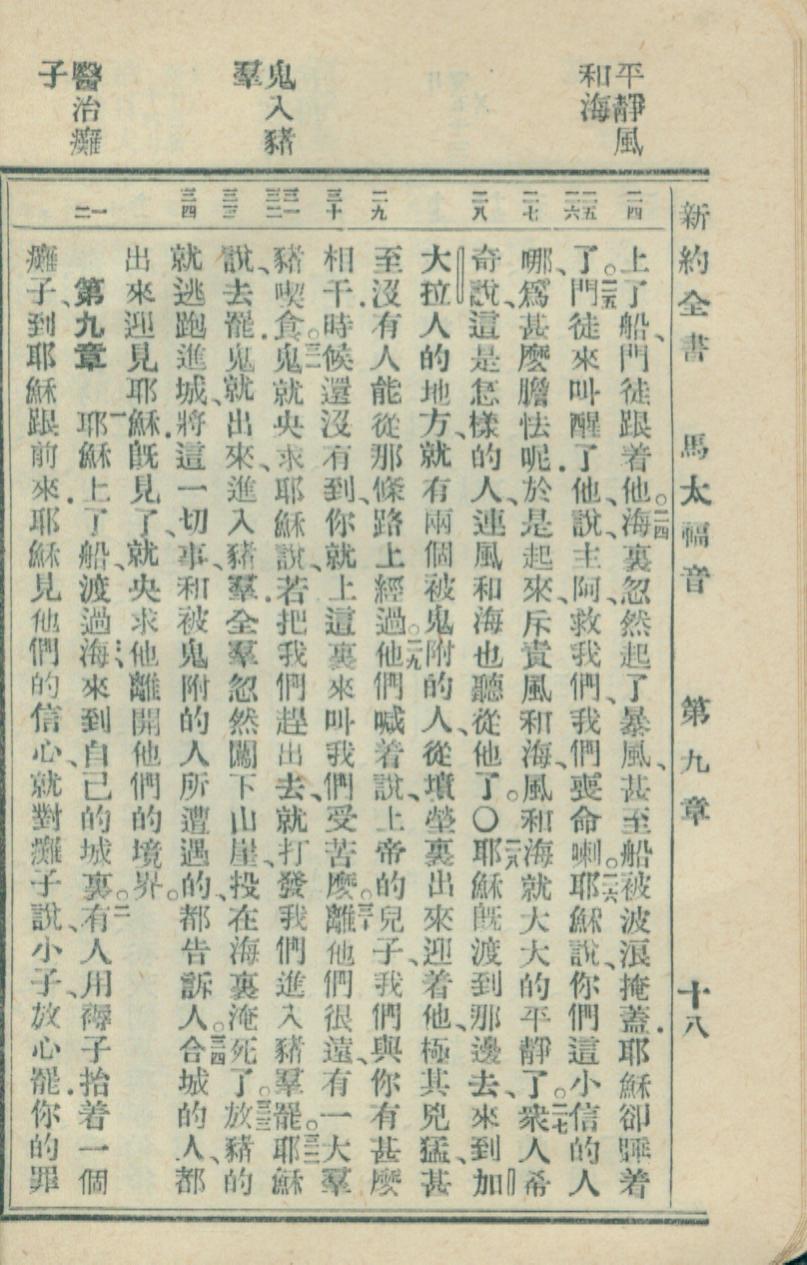 新約全書　馬太福音　第九章　十八
平靜風
和海
鬼入豬
羣
醫治癱
子
二四
二五
二六
二七
二八
二九
三十
三一
三二
三三
三四
一
二
上了船、門徒跟着他。二四海裏忽然起了暴風、甚至船被波浪掩蓋．耶穌卻睡着
了。二五門徒來叫醒了他、說、主阿、救我們、我們喪命喇。二六耶穌說、你們這小信的人
哪、爲甚麼膽怯呢．於是起來、斥責風和海、風和海就大大的平靜了。二七衆人希
奇說、這是怎樣的人、連風和海也聽從他了。〇二八耶穌旣渡到那邊去、來到加
大拉人的地方、就有兩個被鬼附的人、從墳塋裏出來迎着他、極其兇猛、甚
至沒有人能從那條路上經過。二九他們喊着說、上帝的兒子、我們與你有甚麼
相干．時候還沒有到、你就上這裏來叫我們受苦麼。三十離他們很遠、有一大羣
豬喫食。三一鬼就央求耶穌說、若把我們趕出去、就打發我們進入豬羣罷。三二耶穌
說、去罷．鬼就出來、進入豬羣．全羣忽然闖下山崖、投在海裏淹死了。三三放豬的
就逃跑進城、將這一切事、和被鬼附的人所遭遇的、都告訴人。三四合城的人、都
出來迎見耶穌．旣見了、就央求他離開他們的境界。
第九章　一耶穌上了船、渡過海、來到自己的城裏。二有人用褥子抬着一個
癱子、到耶穌跟前來．耶穌見他們的信心、就對癱子說、小子、放心罷．你的罪